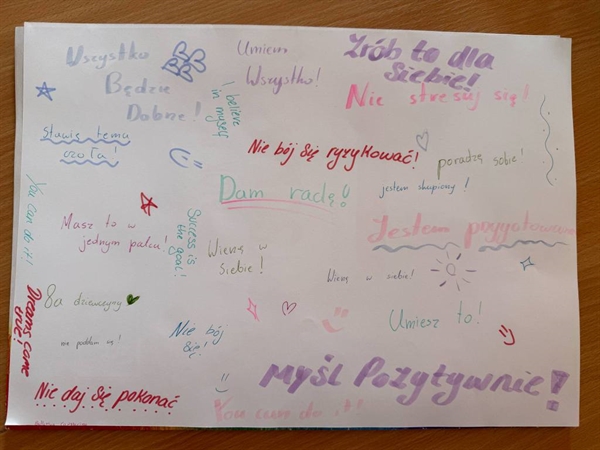 Wszystko
Będzie
Dobrze!
Umiem
Wszystko!
Zrób to dla
Siebie!
Nie stresuj się!
I believe
in myself
Stawię temu
czoła!
Nie bój się ryzykować!
poradzę sobie!
jestem skupiony!
Dam radę!
You can do it!
Masz to w
jednym palcu!
Success is
the goal!
Wierzę w
siebie!
Jestem przygotowana
Wierzę w siebie!
8a dziewczyny
Dreams come
true!
nie poddam się!
Nie bój
się!
Umiesz to!
Myśl Pozytywnie!
Nie daj się pokonać
You can do it!